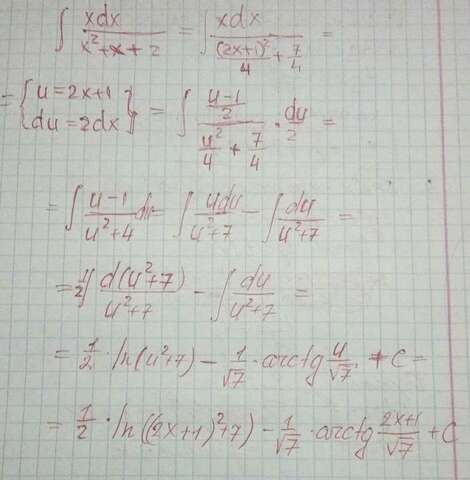 ∫ xdx / (x²+x+2) = ∫ xdx / ((2x+1)²/4 + 7/4) =
= {u=2x+1, du=2dx} = ∫ ((u-1)/2) / (u²/4 + 7/4) · du/2 =
= ∫ (u-1)/(u²+4) du = ∫ udu/(u²+7) - ∫ du/(u²+7) =
= 1/2 ∫ d(u²+7)/(u²+7) - ∫ du/(u²+7) =
= 1/2 · ln(u²+7) - 1/√7 · arctg u/√7 + C =
= 1/2 · ln((2x+1)²+7) - 1/√7 · arctg (2x+1)/√7 + C